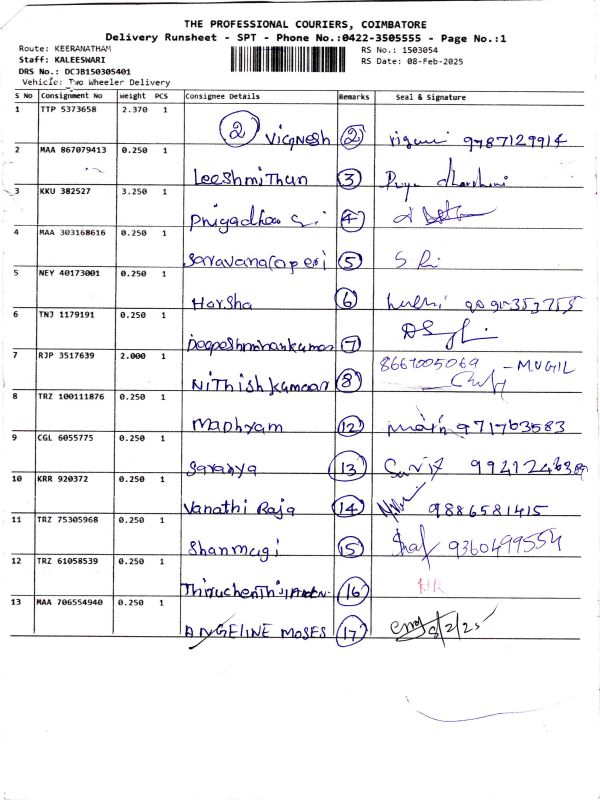 THE PROFESSIONAL COURIERS, COIMBATORE
Delivery Runsheet - SPT - Phone No.:0422-3505555 - Page No.:1
Route: KEERANATHAM
RS No.: 1503054
Staff: KALEESWARI
RS Date: 08-Feb-2025
DRS No.: DCJB150305401
Vehicle: Two Wheeler Delivery
S No Consignment No Weight PCS Consignee Details Remarks Seal & Signature
1 TTP 5373658 2.370 1
② Vignesh ② 9787129914
2 MAA 867079413 0.250 1
Leeshmithun ③ Priya dharshini
3 KKU 382527 3.250 1
④
4 MAA 303168616 0.250 1
⑤ S Ri
5 NEY 40173001 0.250 1
Harsha ⑥
6 TNJ 1179191 0.250 1
⑦
7 RJP 3517639 2.000 1
8667005069 - MUGIL
Nithishkumaar ⑧
8 TRZ 100111876 0.250 1
Madhyam ⑫ 971763583
9 CGL 6055775 0.250 1
Saranya ⑬
10 KRR 920372 0.250 1
Vanathi Raja ⑭ 9886581415
11 TRZ 75305968 0.250 1
Shanmugi ⑮ 9360499554
12 TRZ 61058539 0.250 1
⑯ NR
13 MAA 706554940 0.250 1
ANGELINE MOSES ⑰ 8/2/25